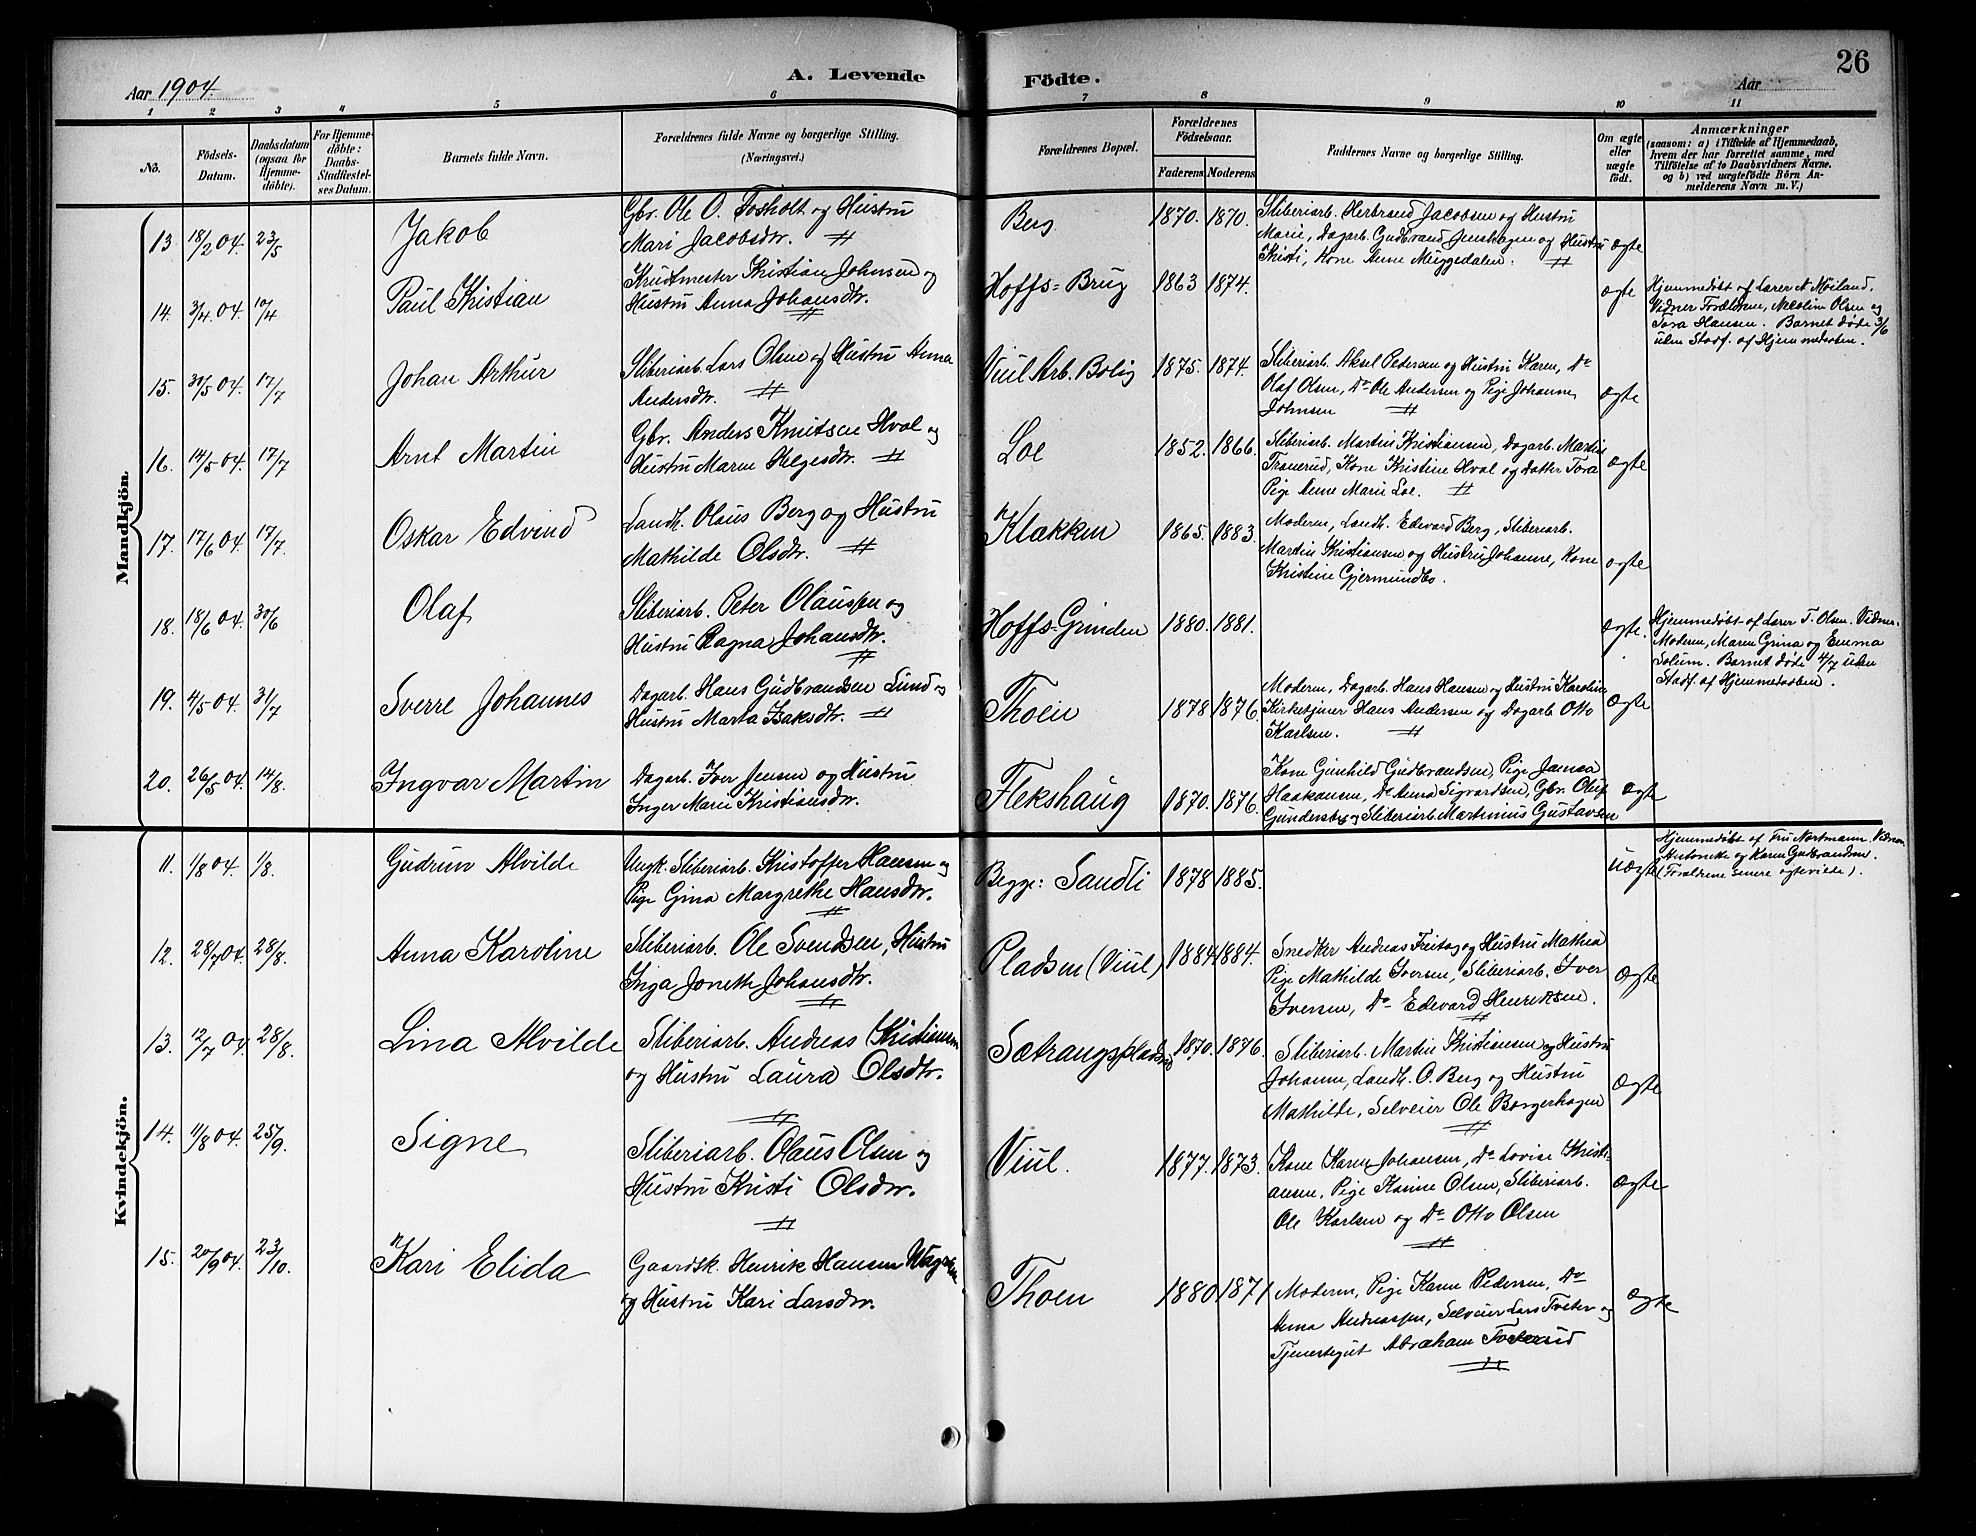 26
Aar 1904.
A. Levende
Födte.
Aar
1 2 3 4 5 6 7 8 9 10 11
No.
Födsels-
Datum.
Daabsdatum
(ogsaa for
Hjemme-
döbte).
For Hjemme-
döbte:
Daabs-
Stadfæstel-
ses Datum.
Barnets fulde Navn.
Forældrenes fulde Navne og borgerlige Stilling.
(Næringsvei.)
Forældrenes Bopæl.
Forældrenes
Födselsaar.
Faderens Moderens
Faddernes Navne og borgerlige Stilling.
Om ægte
eller
uægte
födt.
Anmærkninger
(saasom: a) i Tilfælde af Hjemmedaab,
hvem der har forrettet samme, med
Tilföielse af to Daabsvidners Navne.
og b) ved uægtefödte Börn An-
melderens Navn m. V.)
Mandkjön.
13 18/2 04. 23/5
Jakob
Gbr. Ole O. Fosholt og Hustru
Mari Jacobsdtr.
Berg
1870. 1870.
Sliberiarb. Herbrand Jacobsen og Hustru
Marie, Dagarb. Gudbrand Jenshagen og Hustru
Kristi, Kone Anne Muggedalen.
ægte
14. 3/4 04. 10/4
Paul Kristian
Krudtmester Kristian Johnsen og
Hustru Anna Johansdtr.
Hoffs-Brug
1863 1874.
ægte
Hjemmedøbt af Lærer N. Moiland.
Vidner Forældrene, Nicoline Olsen og
Tora Hansen. Barnet døde 3/6
uden Stadf. af Hjemmedaaben.
15. 30/5 04. 17/7
Johan Arthur
Sliberiarb. Lars Olsen og Hustru Anna
Andersdtr.
Viul Arb. Bolig
1875. 1874.
Sliberiarb. Aksel Pedersen og Hustru Karen, Do
Olaf Olsen, Do Ole Andersen og Pige Johanne
Johnsen
ægte
16. 14/5 04. 17/7
Arnt Martin
Gbr. Anders Knutsen Hval og
Hustru Maren Helgesdtr.
Loe
1852. 1866.
Sliberiarb. Martin Kristiansen, Dagarb. Martin
Tranerud, Kone Kristine Hval og Datter Tora
Pige Anne Marie Loe.
ægte
17. 17/6 04. 17/7.
Oskar Edvind
Landh. Olaus Berg og Hustru
Mathilde Olsdtr.
Klækken
1865. 1883.
Moderen, Landh. Edevard Berg, Sliberiarb.
Martin Kristiansen og Hustru Johanne, Kone
Kristine Gjermundbo.
ægte
18. 18/6 04. 30/6
Olaf
Sliberiarb. Peter Olaussen og
Hustru Ragna Johansdtr.
Hoffs-Grinden
1880. 1881.
ægte.
Hjemmedøbt af Lærer T. Olsen. Vidner
Moderen, Maren Grina og Emma
Solum. Barnet døde 4/7 uden
Stadf. af Hjemmedaaben.
19. 4/5 04. 31/7
Sverre Johannes
Dagarb. Hans Gudbrandsen Lund og
Hustru Marta Isaksdtr.
Thoen
1878 1876.
Moderen, Dagarb. Hans Hansen og Hustru Karoline
Kirketjener Hans Andersen og Dagarb. Otto
Karlsen.
Ægte
20. 26/5 04. 14/8.
Ingvar Martin
Dagarb. Iver Jensen og Hustru
Inger Marie Kristiansdtr.
Flekshaug
1870. 1876.
Kone Gunhild Gudbrandsen, Pige Janna
Haakansen, Do Anna Sigvardsen, Gbr. Oluf
Gundersby og Sliberiarb. Martinius Gustavsen
Ægte
Kvindekjön.
11. 1/8 04. 1/8.
Gudrun Alvilde
Ungk. Sliberiarb. Kristoffer Hansen og
Pige Gina Margrethe Hansdtr.
Begge: Sandli
1878 1885.
Uægte
Hjemmedøbt af Fru Nortmann. Vidner
og Karen Gudbrandsen.
(Forældrene senere ægteviede).
12. 28/7 04. 28/8.
Anna Karoline
Sliberiarb. Ole Svendsen, Hustru
Inga Joneth Johansdtr.
Pladsen (Viul)
1884 1884.
Snedker Andreas Freitag og Hustru Mathea
Pige Mathilde Iversen, Sliberiarb. Iver
Iversen, Do Edevard Henriksen.
Ægte
13. 12/7 04. 28/8.
Lina Alvilde
Sliberiarb. Andreas Kristiansen
og Hustru Laura Olsdtr.
Sætrangspladsen
1870. 1876.
Sliberiarb. Martin Kristiansen og Hustru
Johanne, Landh. O. Berg og Hustru
Mathilde, Selveier Ole Borgerhagen
Ægte
14. 11/8 04. 25/9.
Signe
Sliberiarb. Olaus Olsen og
Hustru Kristi Olsdtr.
Viul.
1877. 1873.
Kone Karen Johansen, Do Lovise Kristi-
ansen, Pige Karine Olsen, Sliberiarb.
Ole Karlsen og Do Otto Olsen
Ægte
15. 20/9 04. 23/10.
Kari Elida
Gaardsk. Henrik Hansen Wagren
og Hustru Kari Larsdtr.
Thoen
1880 1871
Moderen, Pige Karen Pedersen, Do
Anna Andreassen, Selveier Lars Tveter og
Tjenestegut Abraham Foskerud
Ægte